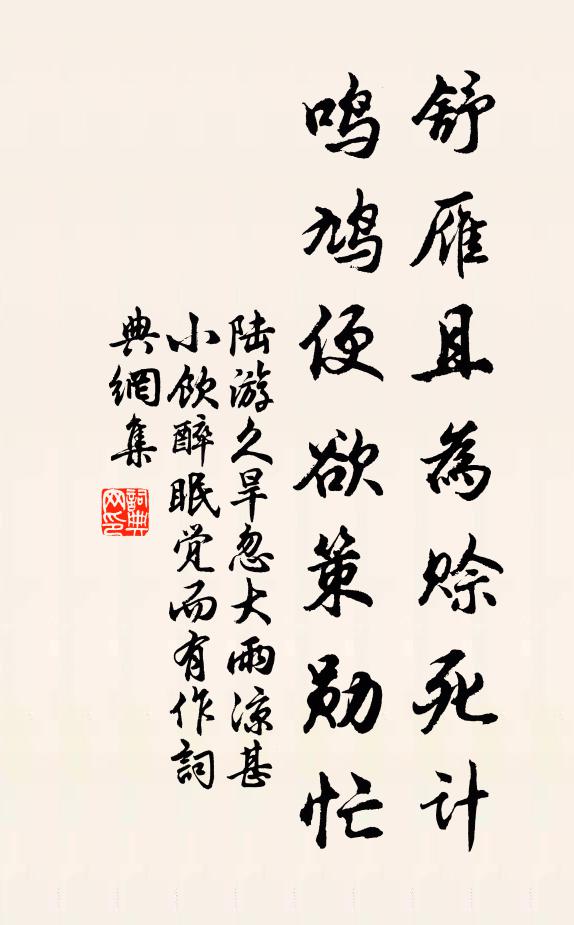 舒雁且為赊死计
鸣鸠便欲策勋忙
陆游久旱忽大雨涼甚
小饮醉眠觉而有作詞
典網集
詞典网印